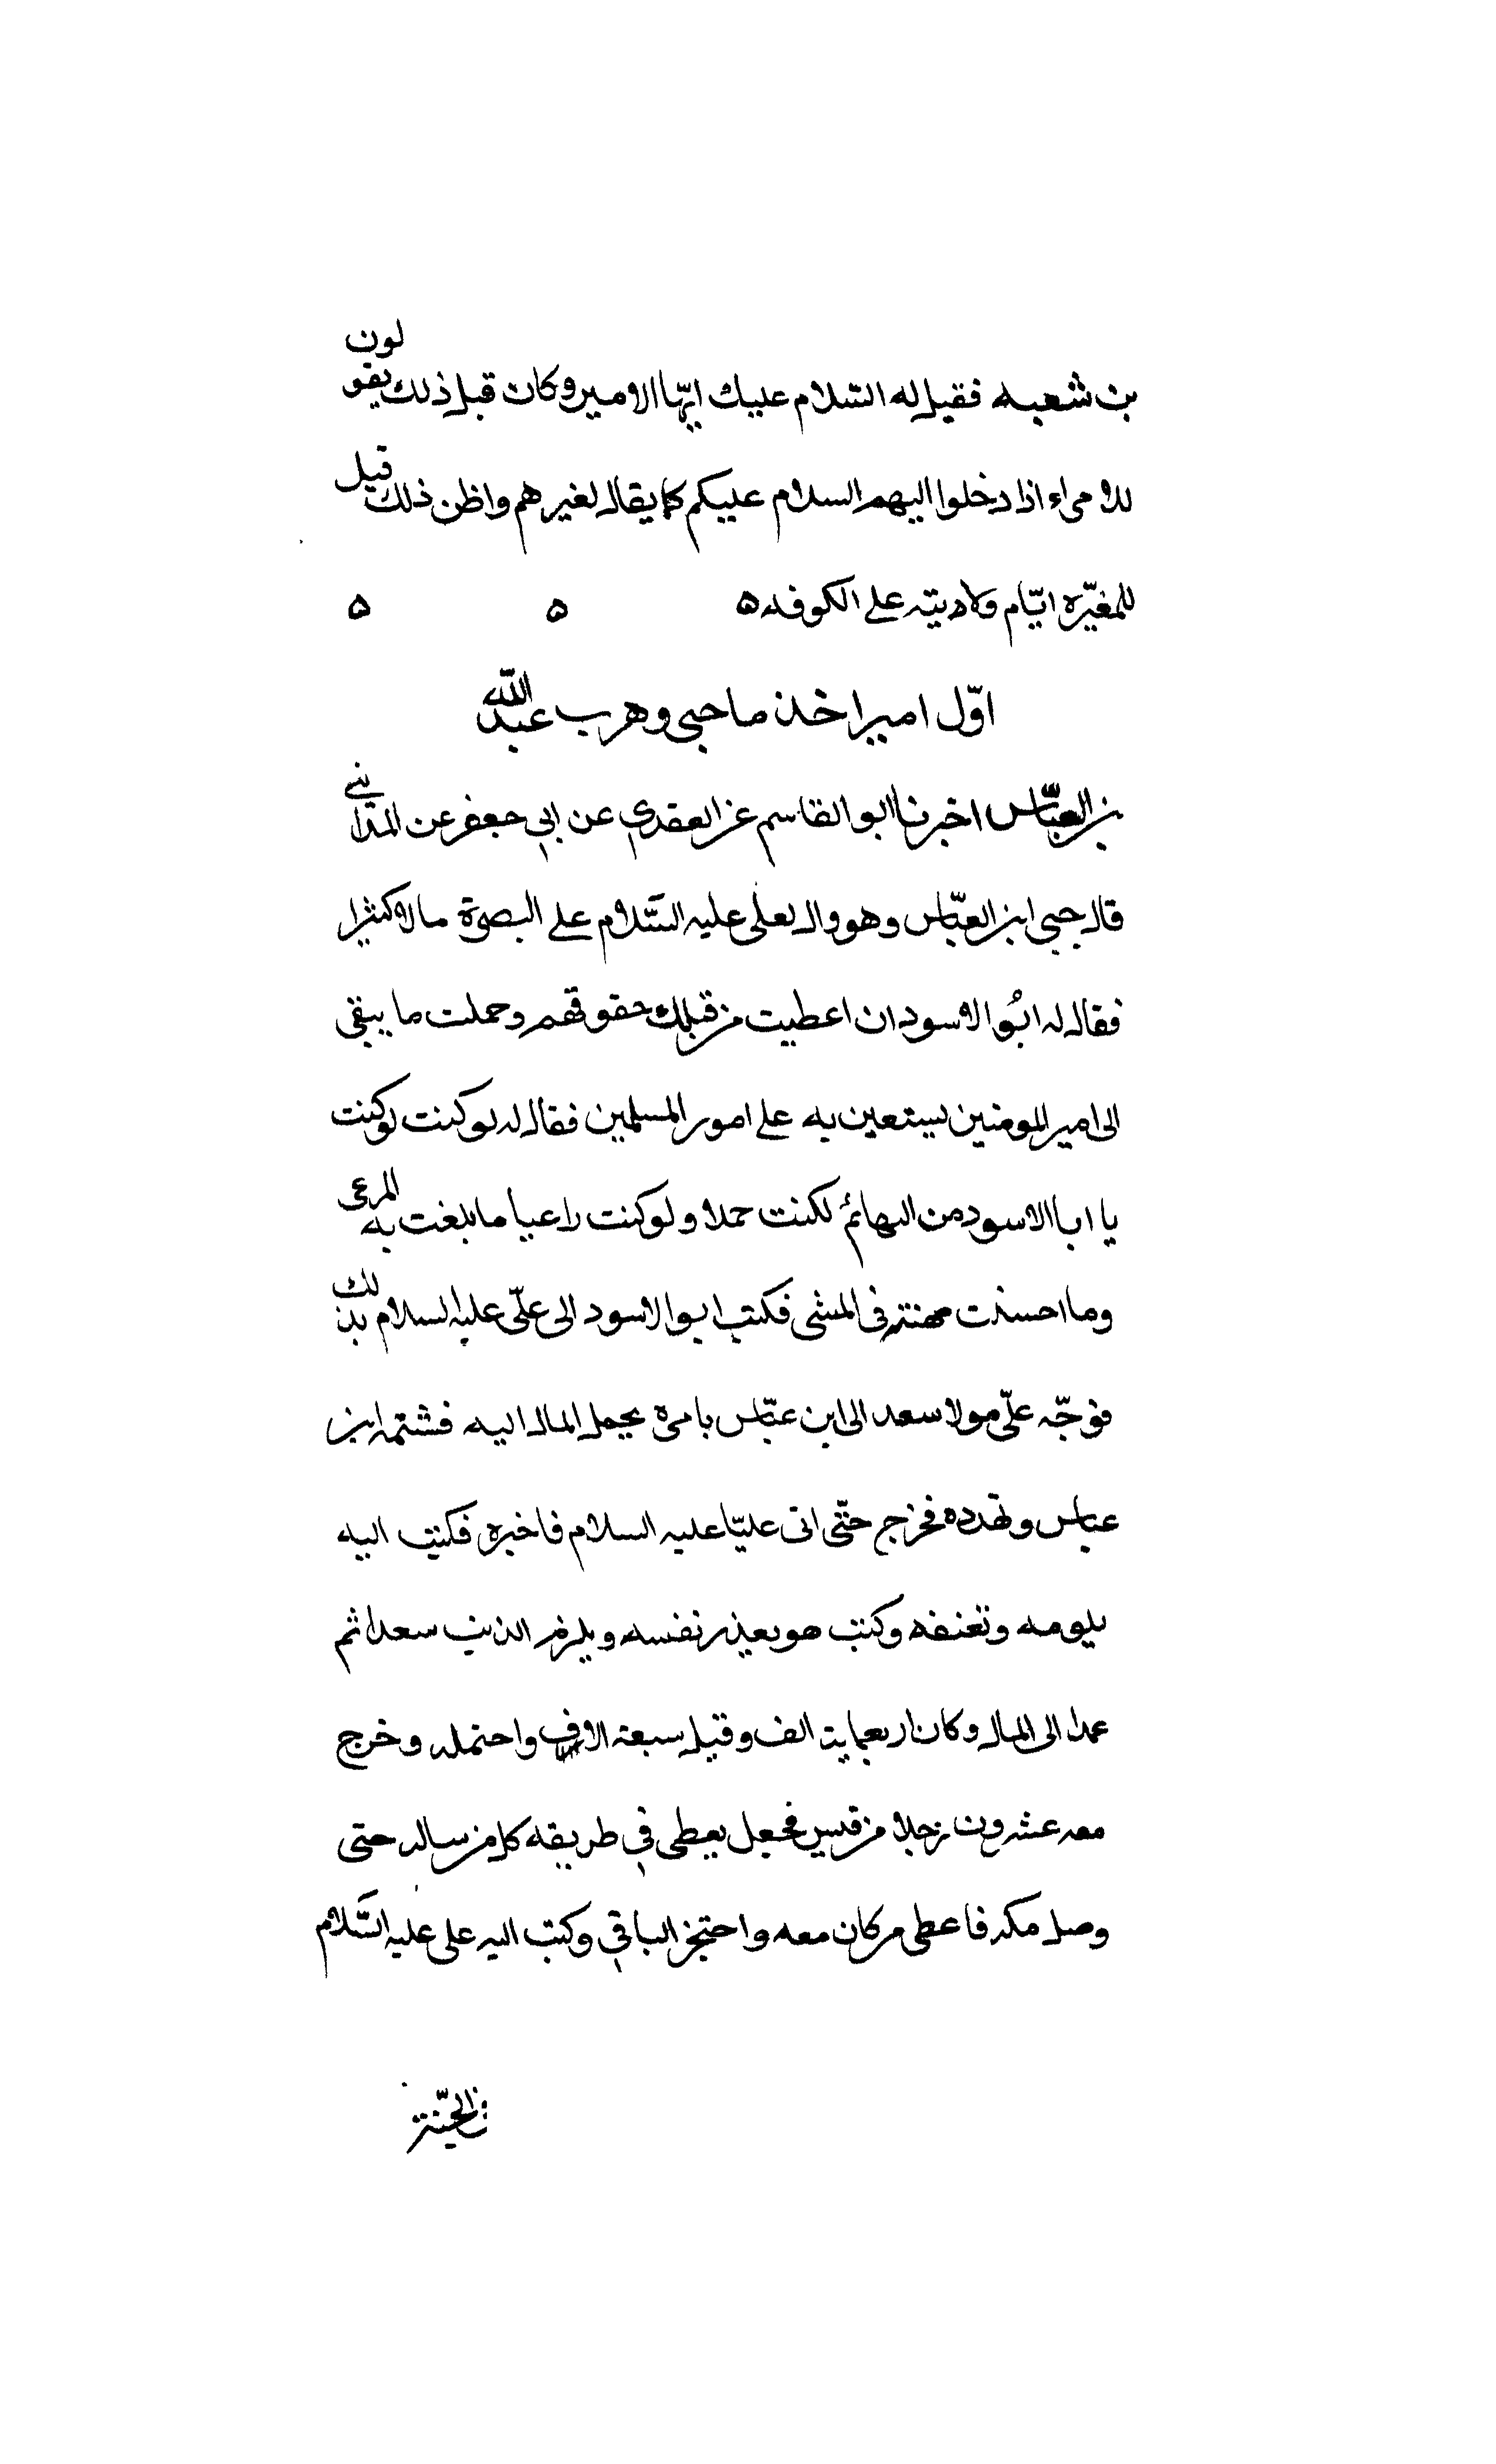 بن شعبه فقيل له السّلام عليك ايّها الامير وكان قبل ذلك يقولون
للامراء اذا دخلوا اليهم السلام عليكم كما يقال لغيرهم واظن ذلك قيل
للمغيّره ايّام ولايته على الكوفه ه ه ه
اوّل امير اخذ ما جبى وهرب عبد الله
بن العبّاس اخبرنا ابو القاسم عن العقدي عن ابي جعفر عن المدايني
قال جبى ابن العبّاس وهو وال لعلى عليه السَّلام على البصرة مالا كثيرا
فقال له ابُو الاسود ان اعطيت من قبلك حقوقهم وحملت ما يبقى
الى امير المومنين يستعين به على امور المسلمين فقال له لو كنت لو كنت
يا ابا الاسود من البهائم لكنت حملا ولو كنت راعيا ما بلغت به المرعى
وما احسنت مهنته فى المشى فكتب ابو الاسود الى علّى عليه السلام بذلك
فوجّه علّى مولا سعد الى ابن عبّاس بامره بحمل المال اليه فشتمه ابن
عباس وتهدده فخرج حتّى اتى عليّا عليه السلام فاخبره فكتب اليه
يلومه وتعنفه وكتب هو يعذر نفسه ويلزم الذنب سعدا ثم
عمدا الى المال وكان اربعماية الف وقيل سبعة الاف واحتمله وخرج
معه عشرون رجلا من قيس فجعل يعطى في طريقه كل من ساله حتى
وصل مكه فاعطى من كان معه واحتجز الباقي وكتب اليه على عليه السَّلام